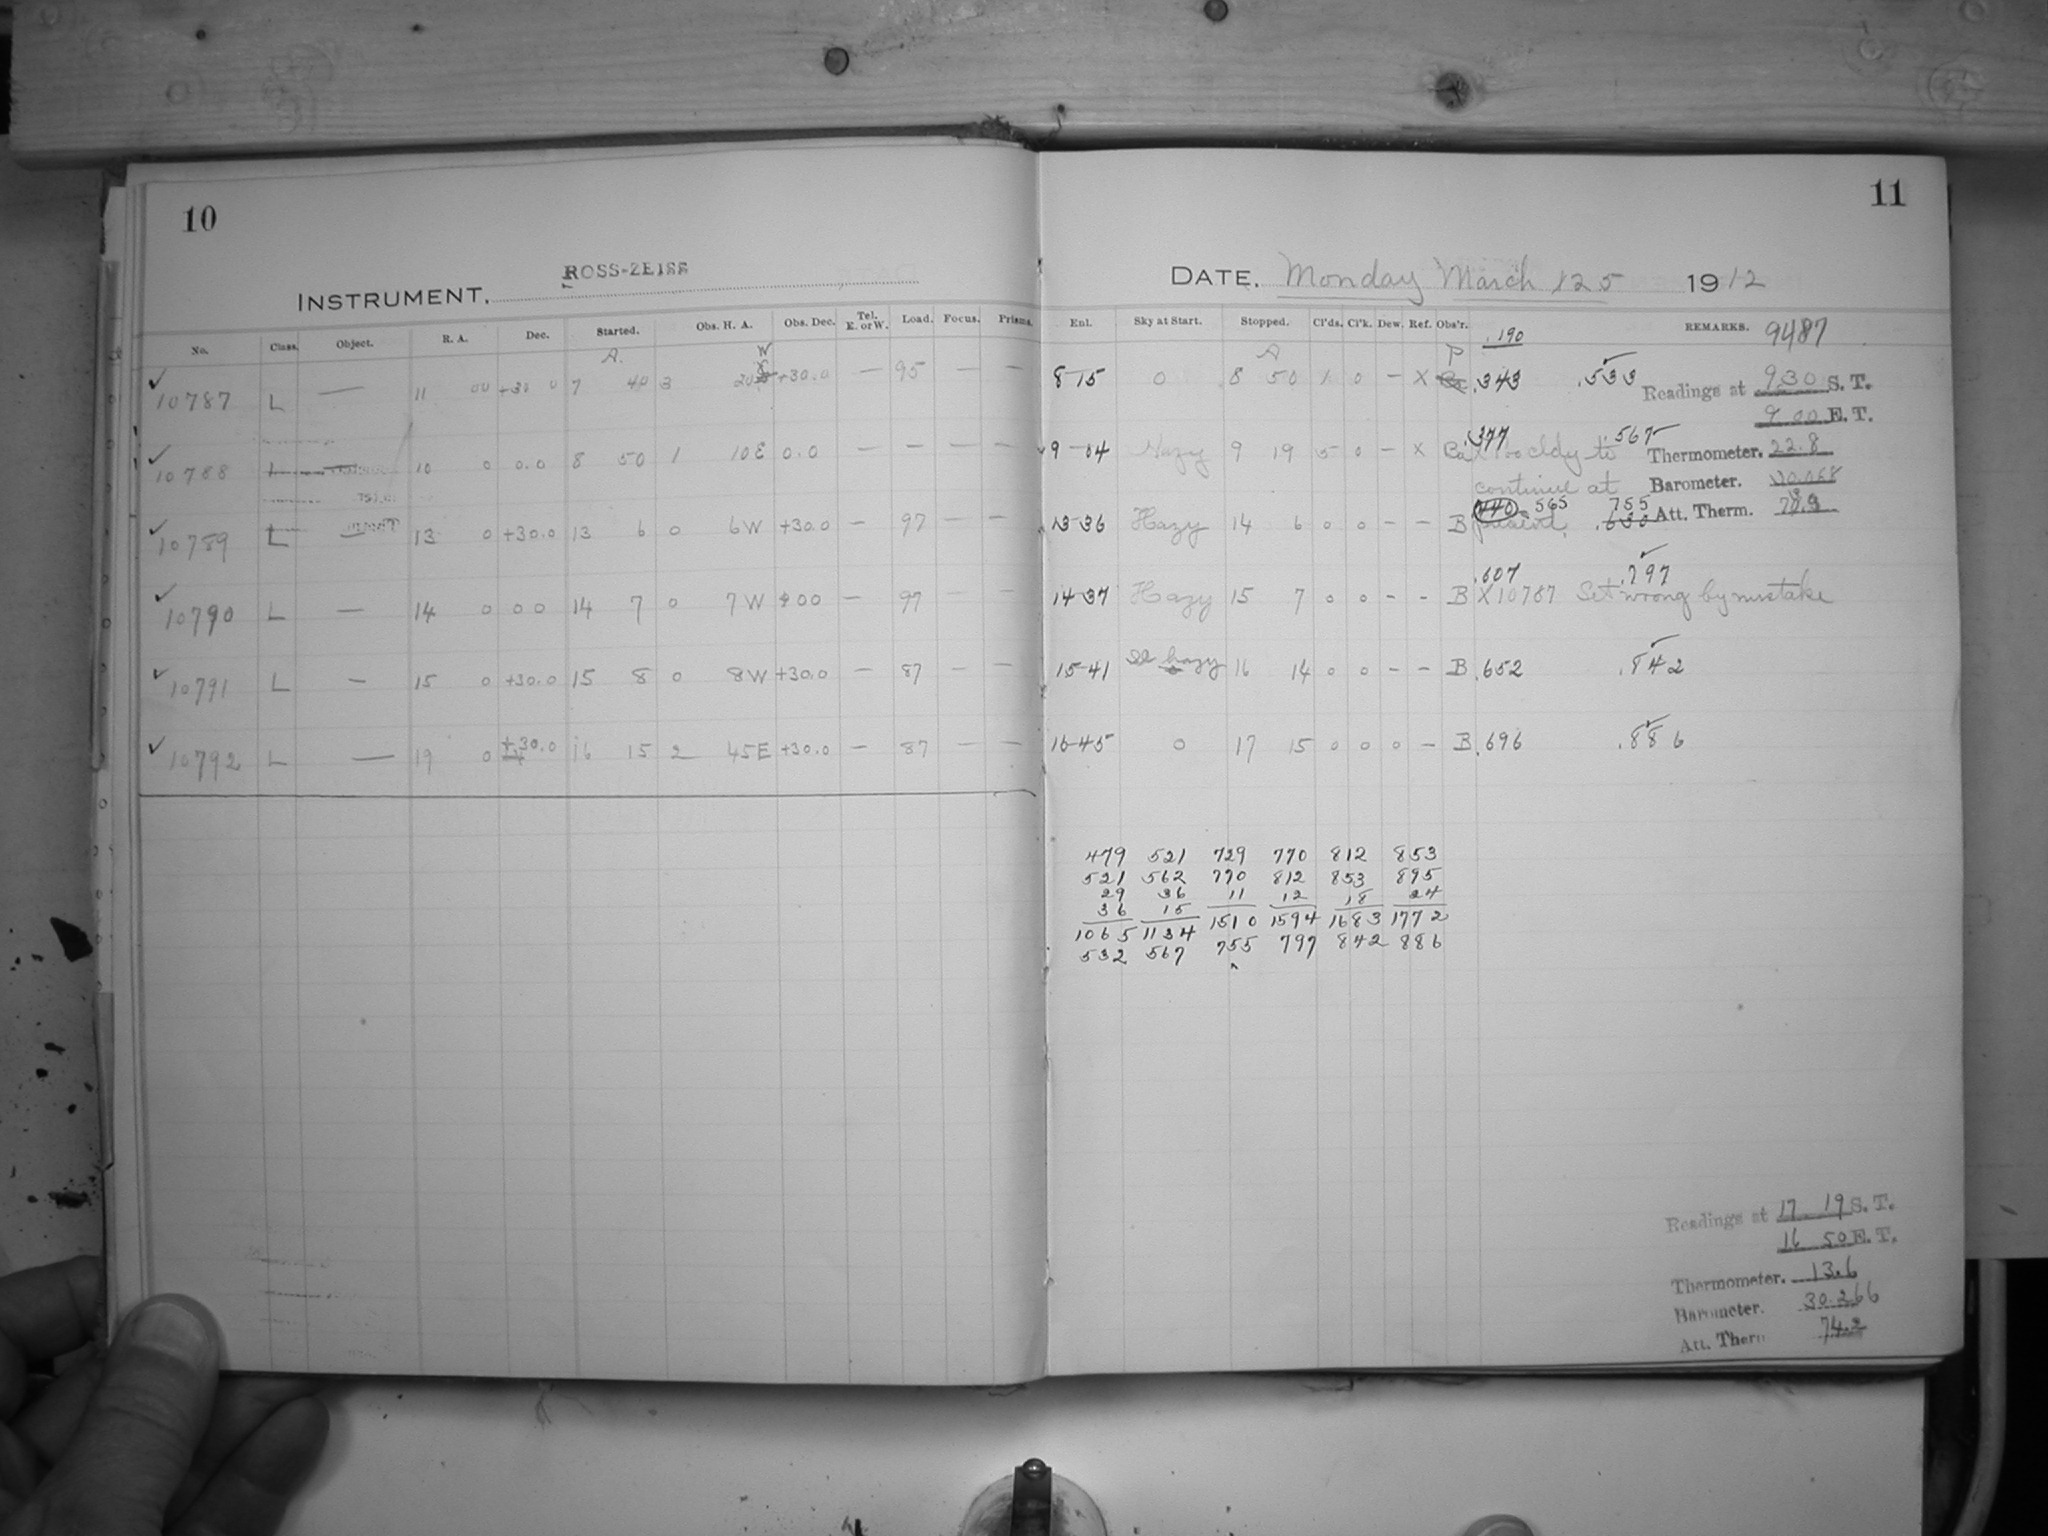 10
11
ROSS-ZEISS
INSTRUMENT.
DATE. Monday March 125 1912
No. Class. Object. R. A. Dec. Started. Obs. H. A. Obs. Dec. Tel. E. or W. Load. Focus. Prisms.
Enl. Sky at Start. Stopped. Cl'ds. Cl'k. Dew. Ref. Obs'r. .190 REMARKS. 9487
A. W
A P
✓ 10787 L — 11 00 +30 0 7 40 3 20 +30.0 — 95 — —
8-15 0 8 50 1 0 — X .343 .533
Readings at 9 30 S. T.
9 00 E. T.
✓ 10788 L — 10 0 0.0 8 50 1 10E 0.0 — — — —
.377 .567
9-04 Hazy 9 19 5 0 — X Ca Too cldy to
Thermometer. 22.8
continue at
Barometer. 30.068
440 .565 755
✓ 10789 L — 13 0 +30.0 13 6 0 6W +30.0 — 97 — —
13-36 Hazy 14 6 0 0 — — B present. .630
Att. Therm.
.607 .797
✓ 10790 L — 14 0 00 14 7 0 7W 00 — 97 — —
14-37 Hazy 15 7 0 0 — — B X10787 Set wrong by mistake
✓ 10791 L — 15 0 +30.0 15 8 0 8W +30.0 — 87 — —
15-41 hazy 16 14 0 0 — — B .652 .842
✓ 10792 L — 19 0 +30.0 16 15 2 45E +30.0 — 87 — —
16-45 0 17 15 0 0 0 — B .696 .886
479 521 729 770 812 853
521 562 770 812 853 895
29 36 11 12 18 24
36 15
1065 1134 1510 1594 1683 1772
532 567 755 797 842 886
Readings at 17 19 S. T.
16 50 E. T.
Thermometer. 13.6
Barometer. 30.266
Att. Therm 74.2